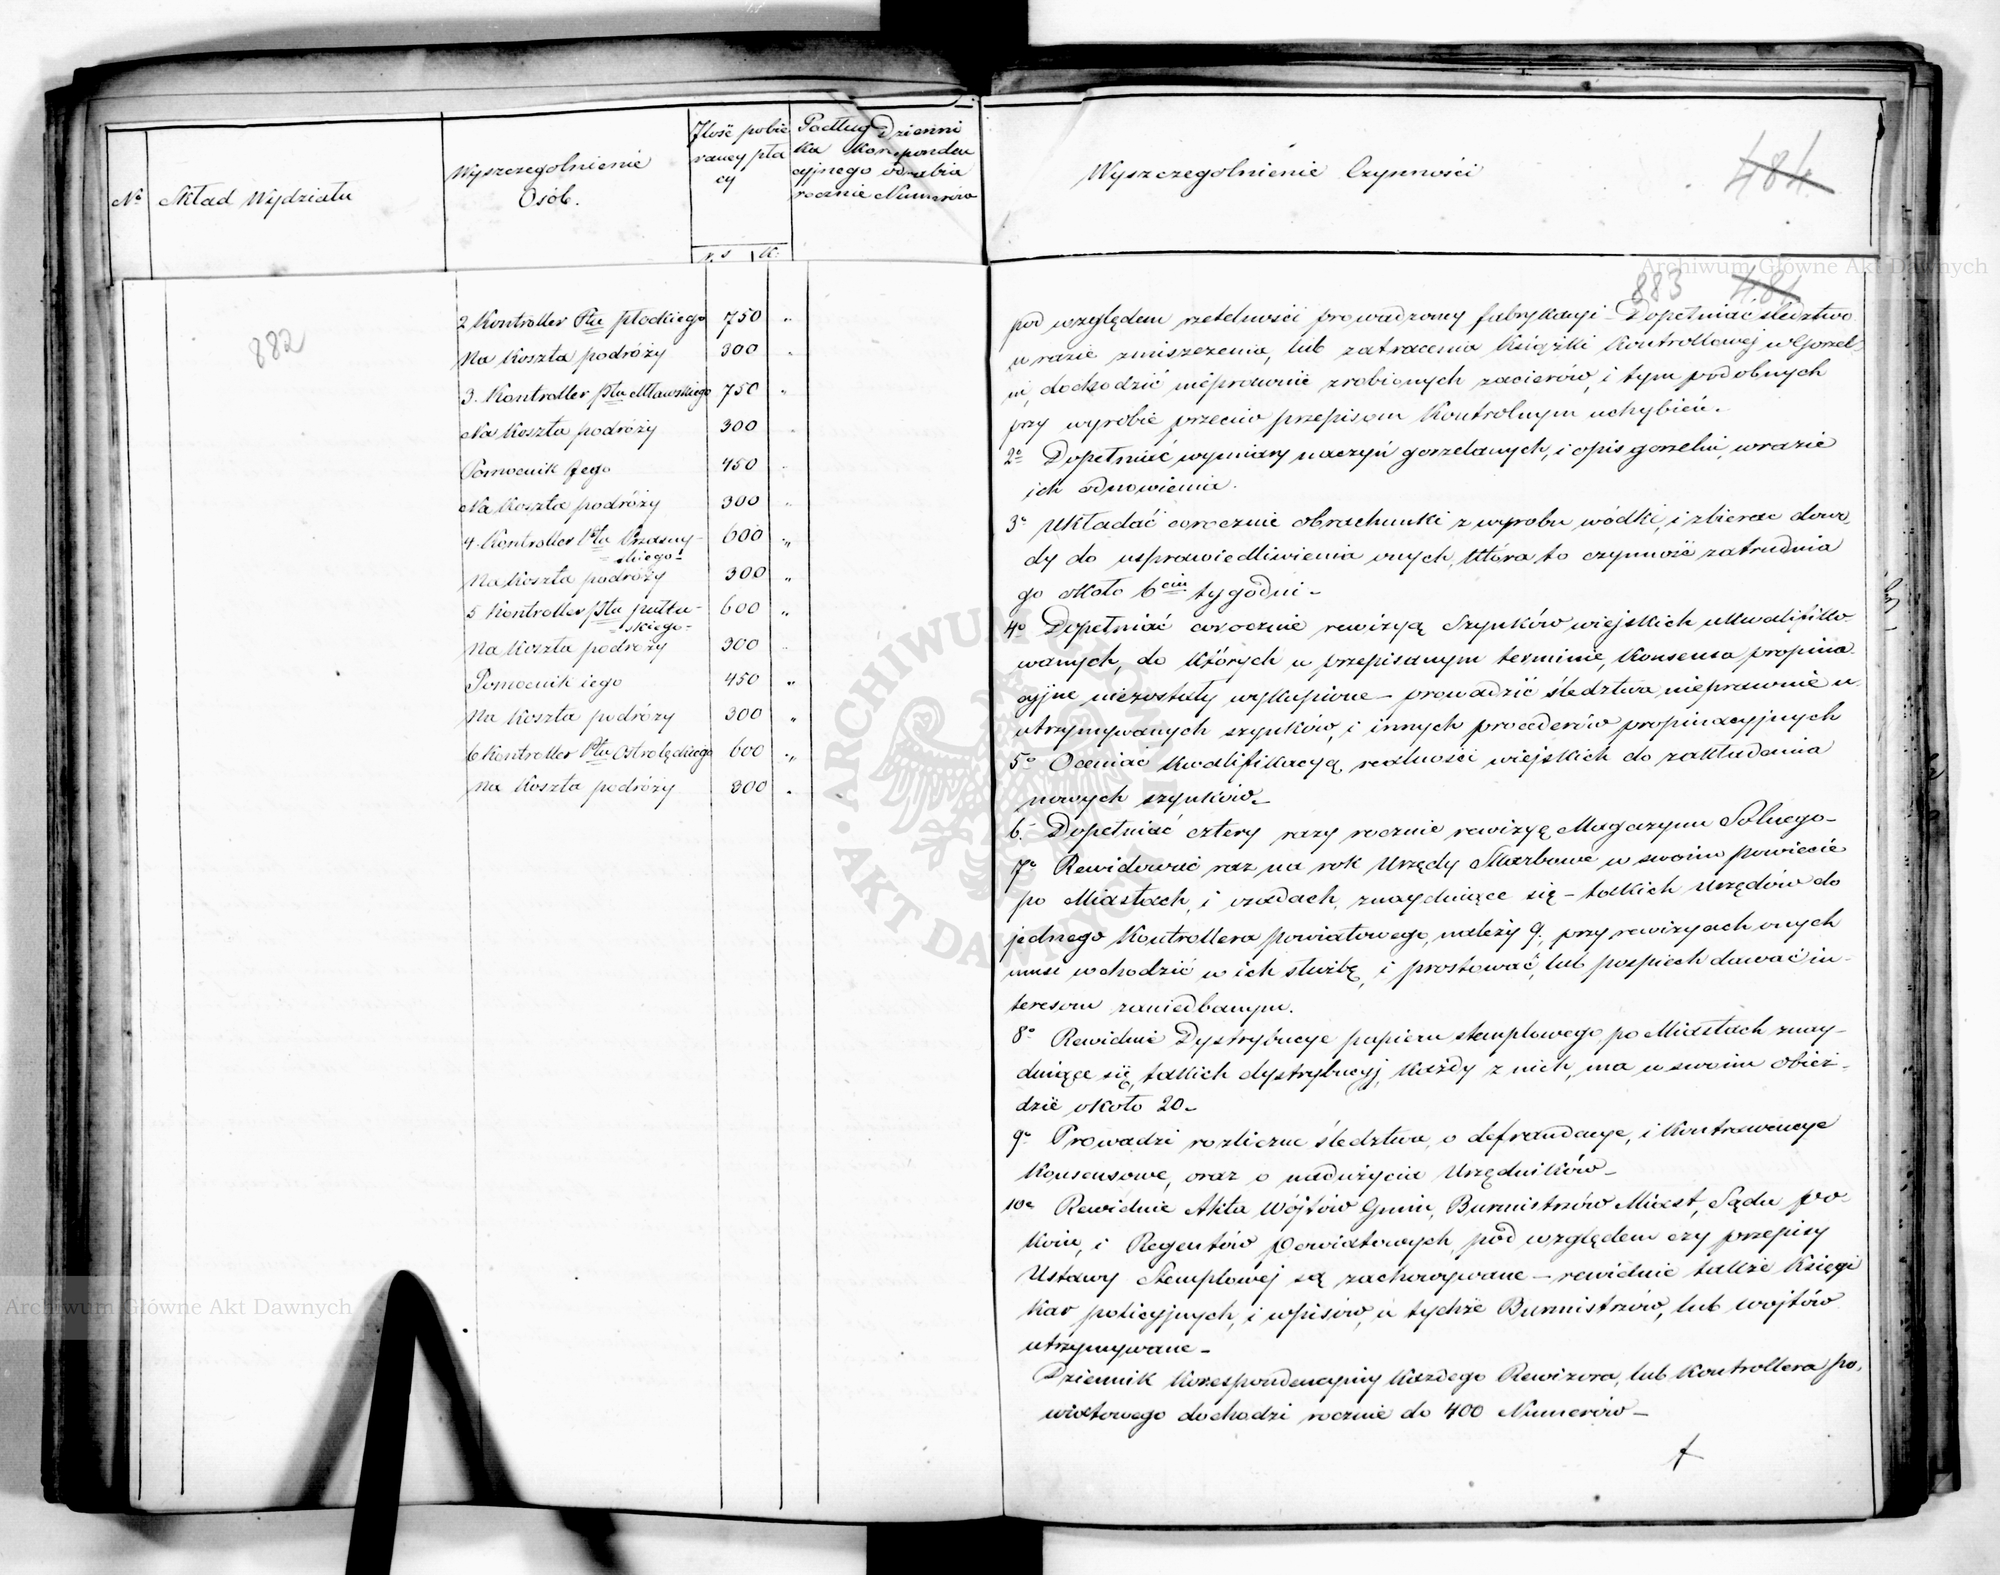 No
Skład Wydziału
Wyszczegolnienie
Osób.
Ilość pobie
raney pła
cy
r. s. k.
Podług Dzienni
ka Korrponden
cyjnego odrabia
rocznie Numerów
882
2 Kontroller Ptu płockiego 750 "
Na koszta podróży 300 "
3. Kontroller Ptu Mławskiego 750 "
Na koszta podróży 300 "
Pomocnik Jego 450 "
Na koszta podróży 300 "
4. Kontroller Ptu Przasny- 600 "
skiego-
Na koszta podróży 300 "
5 Kontroller Ptu pułtu- 600 "
skiego-
Na koszta podróży 300 "
Pomocnik iego 450 "
Na koszta podróży 300 "
6 Kontroller Ptu Ostrołęckiego 600 "
Na koszta podróży 300 "
Wyszczegolnienie Czynności
484
883 484
pod względem rzetelności prowadzoney fabrykacyi - Dopełniać śledztwo
w razie zniszczenia, lub zatracenia książki kontrollowej w Gorzel-
ni, dochodzić nieprawnie zrobionych zacierów, i tym podobnych
przy wyrobie przeciw przepisom kontrolnym uchybień.
2o Dopełniać wymiary naczyń gorzelanych, i opis gorzelni, w razie
ich odnowienia.
3o Układać corocznie obrachunki z wyrobu wódki, i zbierać dowo-
dy do usprawiedliwienia onych, która to czynność zatrudnia
go około 6ciu tygodni-
4o Dopełniać corocznie rewizyą Szynków wiejskich ukwalifiko-
wanych, do których w przepisanym terminie, konsensa propina-
cyjne niezostały wykupione - prowadzić śledztwa nieprawnie u-
utrzymywanych szynków, i innych procederów propinacyjnych
5o Oceniać kwalifikacyą realności wiejskich do zakładania
nowych szynków-
6. Dopełniać cztery razy rocznie rewizyę Magazynu Solnego-
7o Rewidować raz na rok Urzędy Skarbowe w swoim powiecie
po Miastach, i osadach, znayduiące się - takich Urzędów do
jednego Kontrollera powiatowego, należy 9, przy rewizyach onych
musi wchodzić w ich służbę, i prostować, lub pospiech dawać in-
teresom zaniedbanym.
8o Rewiduie Dystrybucye papieru stemplowego, po Miastach znay-
duiące się, takich dystrybucyj, każdy z nich, ma w swoim obież-
dzie około 20-
9o Prowadzi rozliczne śledztwa, o defraudacye, i kontrawencye
konsensowe, oraz o nadużycia Urzędników-
10o Rewiduie Akta Wójtów Gmin, Burmistrzów Miast, Sądu po-
koiu, i Regentów powiatowych, pod względem czy przepisy
Ustawy Stemplowej są zachowywane - rewiduie także Księgi
kar policyjnych, i wpisów, u tychże Burmistrzów, lub wojtów
utrzymywane-
Dziennik korespondencyiny każdego Rewizora, lub Kontrollera po-
wiatowego dochodzi rocznie do 400 Numerów-
Archiwum Główne Akt Dawnych
Archiwum Główne Akt Dawnych
ARCHIWUM GŁÓWNE AKT DAWNYCH